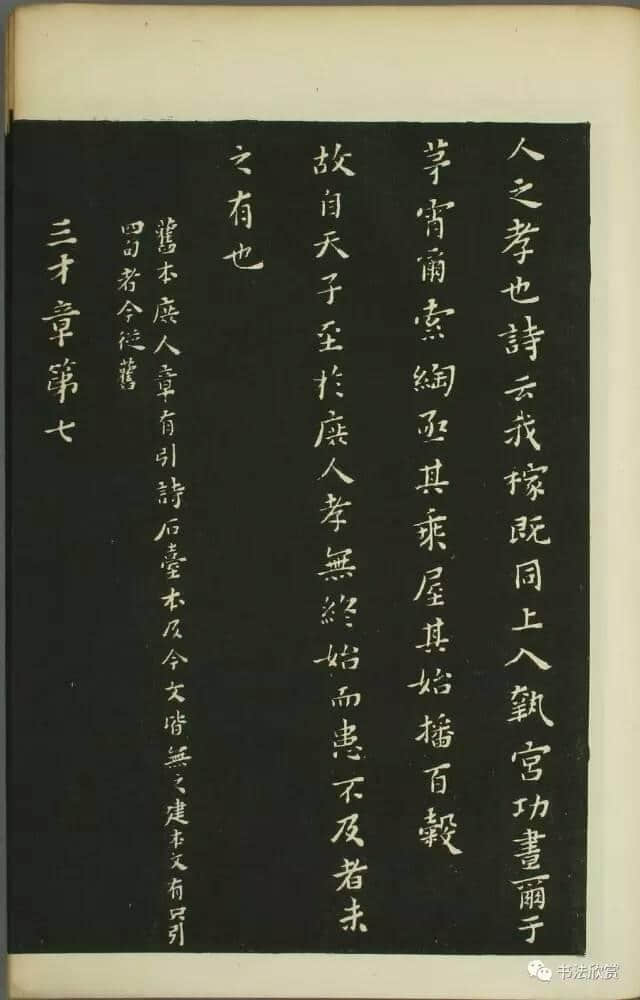 人之孝也詩云我稼既同上入執宮功晝爾于
茅宵爾索綯亟其乘屋其始播百穀
故自天子至於庶人孝無終始而患不及者未
之有也
舊本庶人章有引詩石臺本及今文皆無之建本文有只引
四句者今從舊
三才章第七
书法欣赏